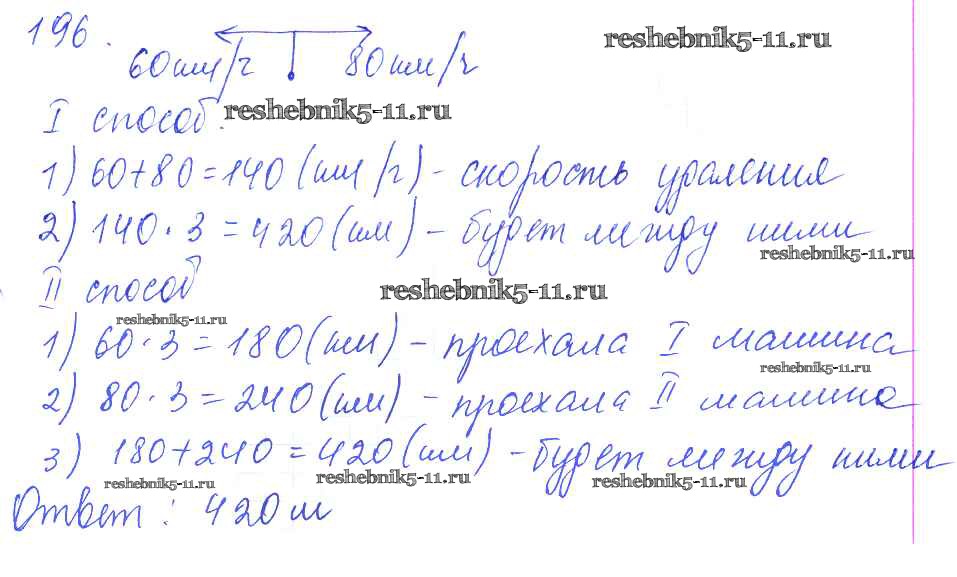 196.
reshebnik5-11.ru
60км/ч 80км/ч
I способ. reshebnik5-11.ru
1) 60+80=140(км/ч) - скорость удаления
2) 140·3=420(км) - будет между ними
reshebnik5-11.ru
II способ reshebnik5-11.ru
reshebnik5-11.ru
1) 60·3=180(км) - проехала I машина
reshebnik5-11.ru
2) 80·3=240(км) - проехала II машина
3) 180+240=420(км) - будет между ними
reshebnik5-11.ru reshebnik5-11.ru reshebnik5-11.ru
Ответ: 420м